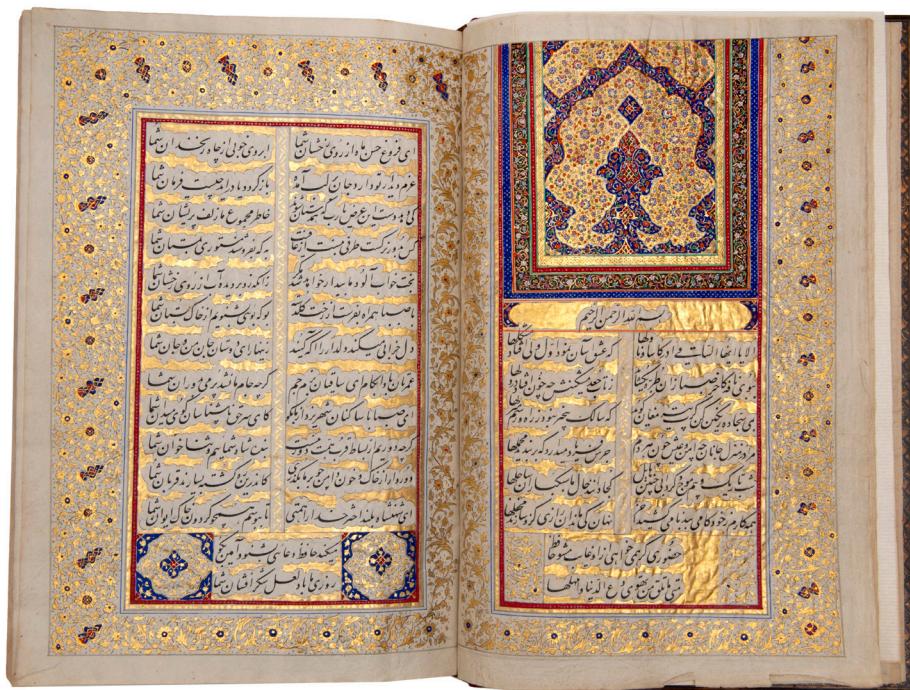 بسم الله الرحمن الرحیم
الا یا ایها الساقی ادر کاسا و ناولها که عشق آسان نمود اول ولی افتاد مشکلها
ببوی نافه کاخر صبا زان طره بگشاید ز تاب جعد مشکینش چه خون افتاد در دلها
بمی سجاده رنگین کن گرت پیر مغان گوید که سالک بیخبر نبود ز راه و رسم منزلها
مرا در منزل جانان چه امن عیش چون هر دم جرس فریاد میدارد که بربندید محملها
شب تاریک و بیم موج و گردابی چنین هایل کجا دانند حال ما سبکباران ساحلها
همه کارم ز خودکامی ببدنامی کشید آخر نهان کی ماند آن رازی کزو سازند محفلها
حضوری گر همی خواهی ازو غایب مشو حافظ
متی ما تلق من تهوی دع الدنیا و اهملها
ای فروغ حسن ماه از روی رخشان شما ابروی خوبی از چاه زنخدان شما
عزم دیدار تو دارد جان بر لب آمده بازگردد یا درآید چیست فرمان شما
کی دهد دست این غرض یارب که همدستان شوند خاطر مجموع ما زلف پریشان شما
کس بدور نرگست طرفی نبست از عافیت به که نفروشند مستوری بمستان شما
بخت خواب آلود ما بیدار خواهد شد مگر زانکه زد بر دیده آب از روی رخشان شما
با صبا همراه بفرست از رخت گلدسته بو که بوی بشنویم از خاک بستان شما
دل خرابی میکند دلدار را آگه کنید زینهار ای دوستان جان من و جان شما
عمرتان بادا و کام ای ساقیان بزم جم گرچه جام ما نشد پر می بدوران شما
ای صبا با ساکنان شهر یزد از ما بگو کای سر حق ناشناسان گوی میدان شما
گرچه دوریم از بساط قرب همت دور نیست بنده شاه شمائیم و ثناخوان شما
دور دار از خاک و خون دامن چو بر ما بگذری کاندرین ره کشته بسیارند قربان شما
ای شهنشاه بلند اختر خدا را همتی تا ببوسم همچو گردون خاک ایوان شما
میکند حافظ دعائی بشنو و آمین بگو
روزی ما باد لعل شکر افشان شما